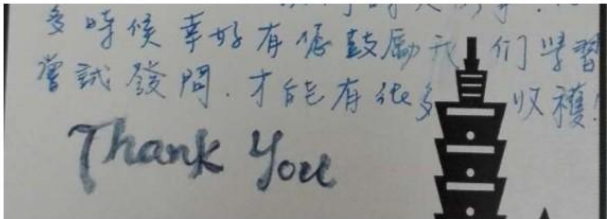 多時候幸好有您鼓勵我们學習
嘗試發問.才能有很多收穫!
Thank You